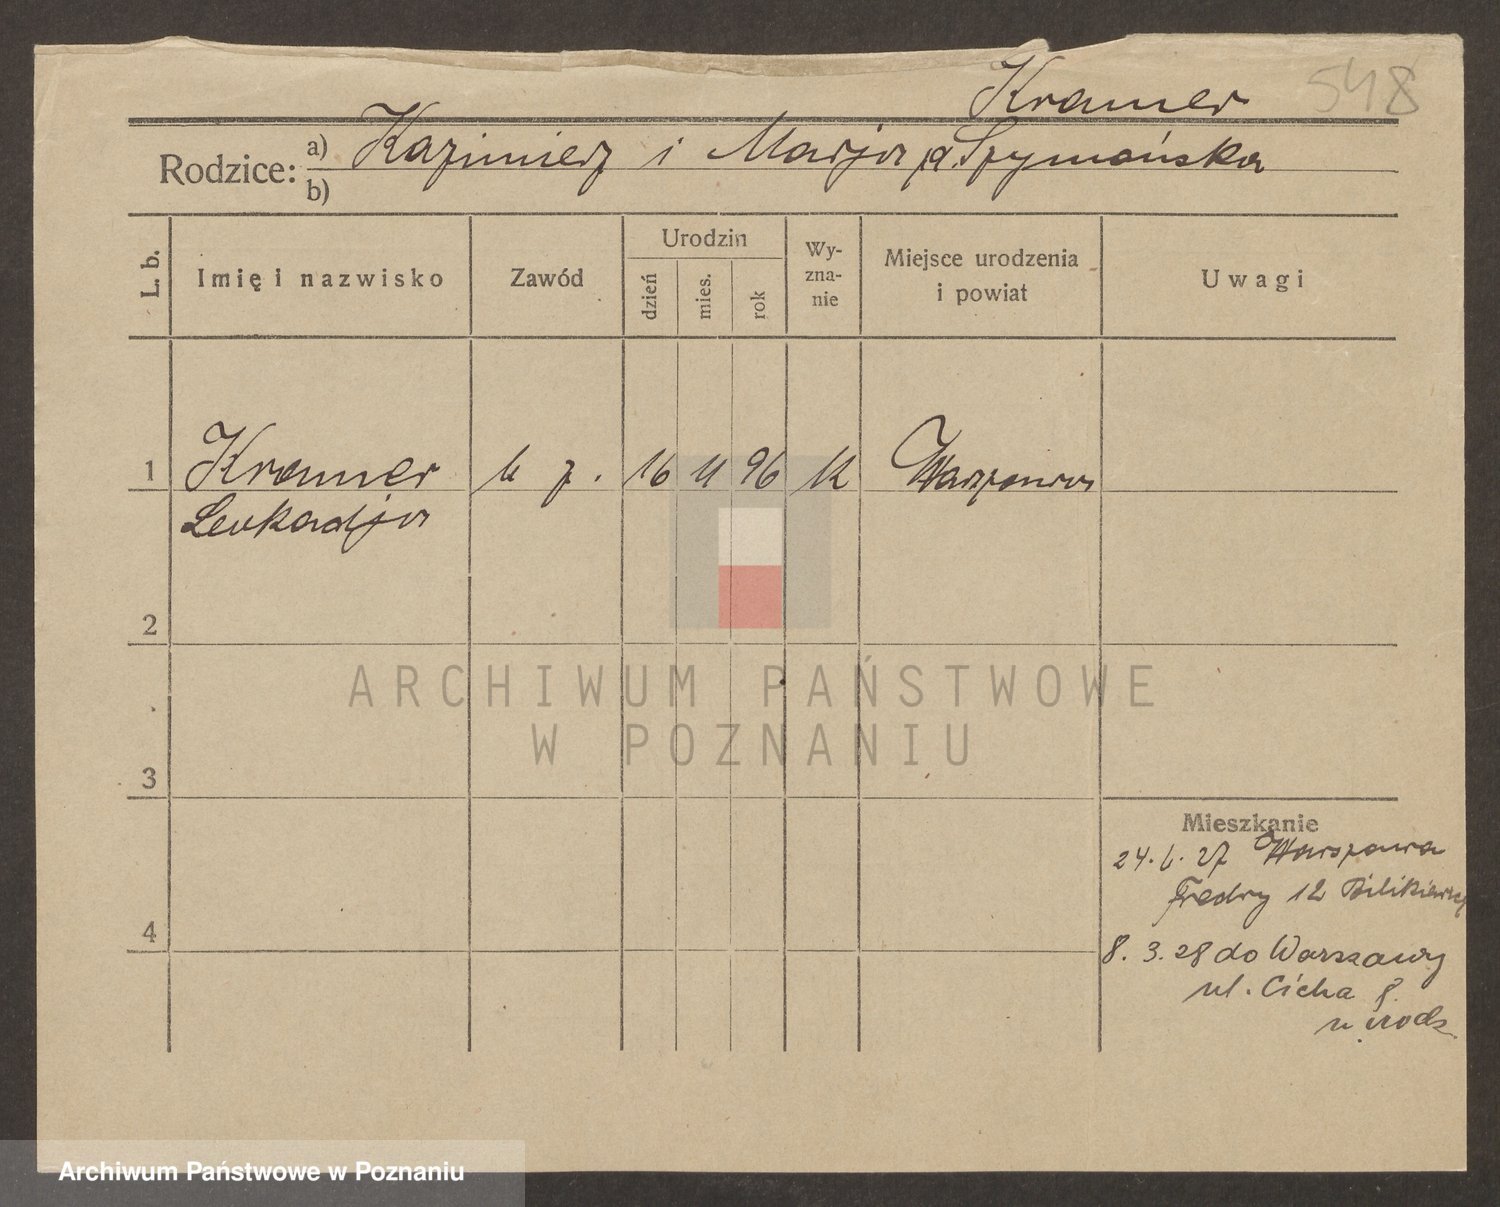 548
Kramer
Rodzice: a) Kazimierz i Marja d. Szymańska
b)
L. b. Imię i nazwisko Zawód Urodzin dzień mies. rok Wyzna-nie Miejsce urodzenia i powiat Uwagi
1 Kramer b z. 16 11 96 k Warszawa
Leokadja
2
ARCHIWUM PAŃSTWOWE
W POZNANIU
3
Mieszkanie
24. 6. 27 Warszawa
Fredry 12
4
8. 3. 28 do Warszawy
ul. Cicha 8
Archiwum Państwowe w Poznaniu